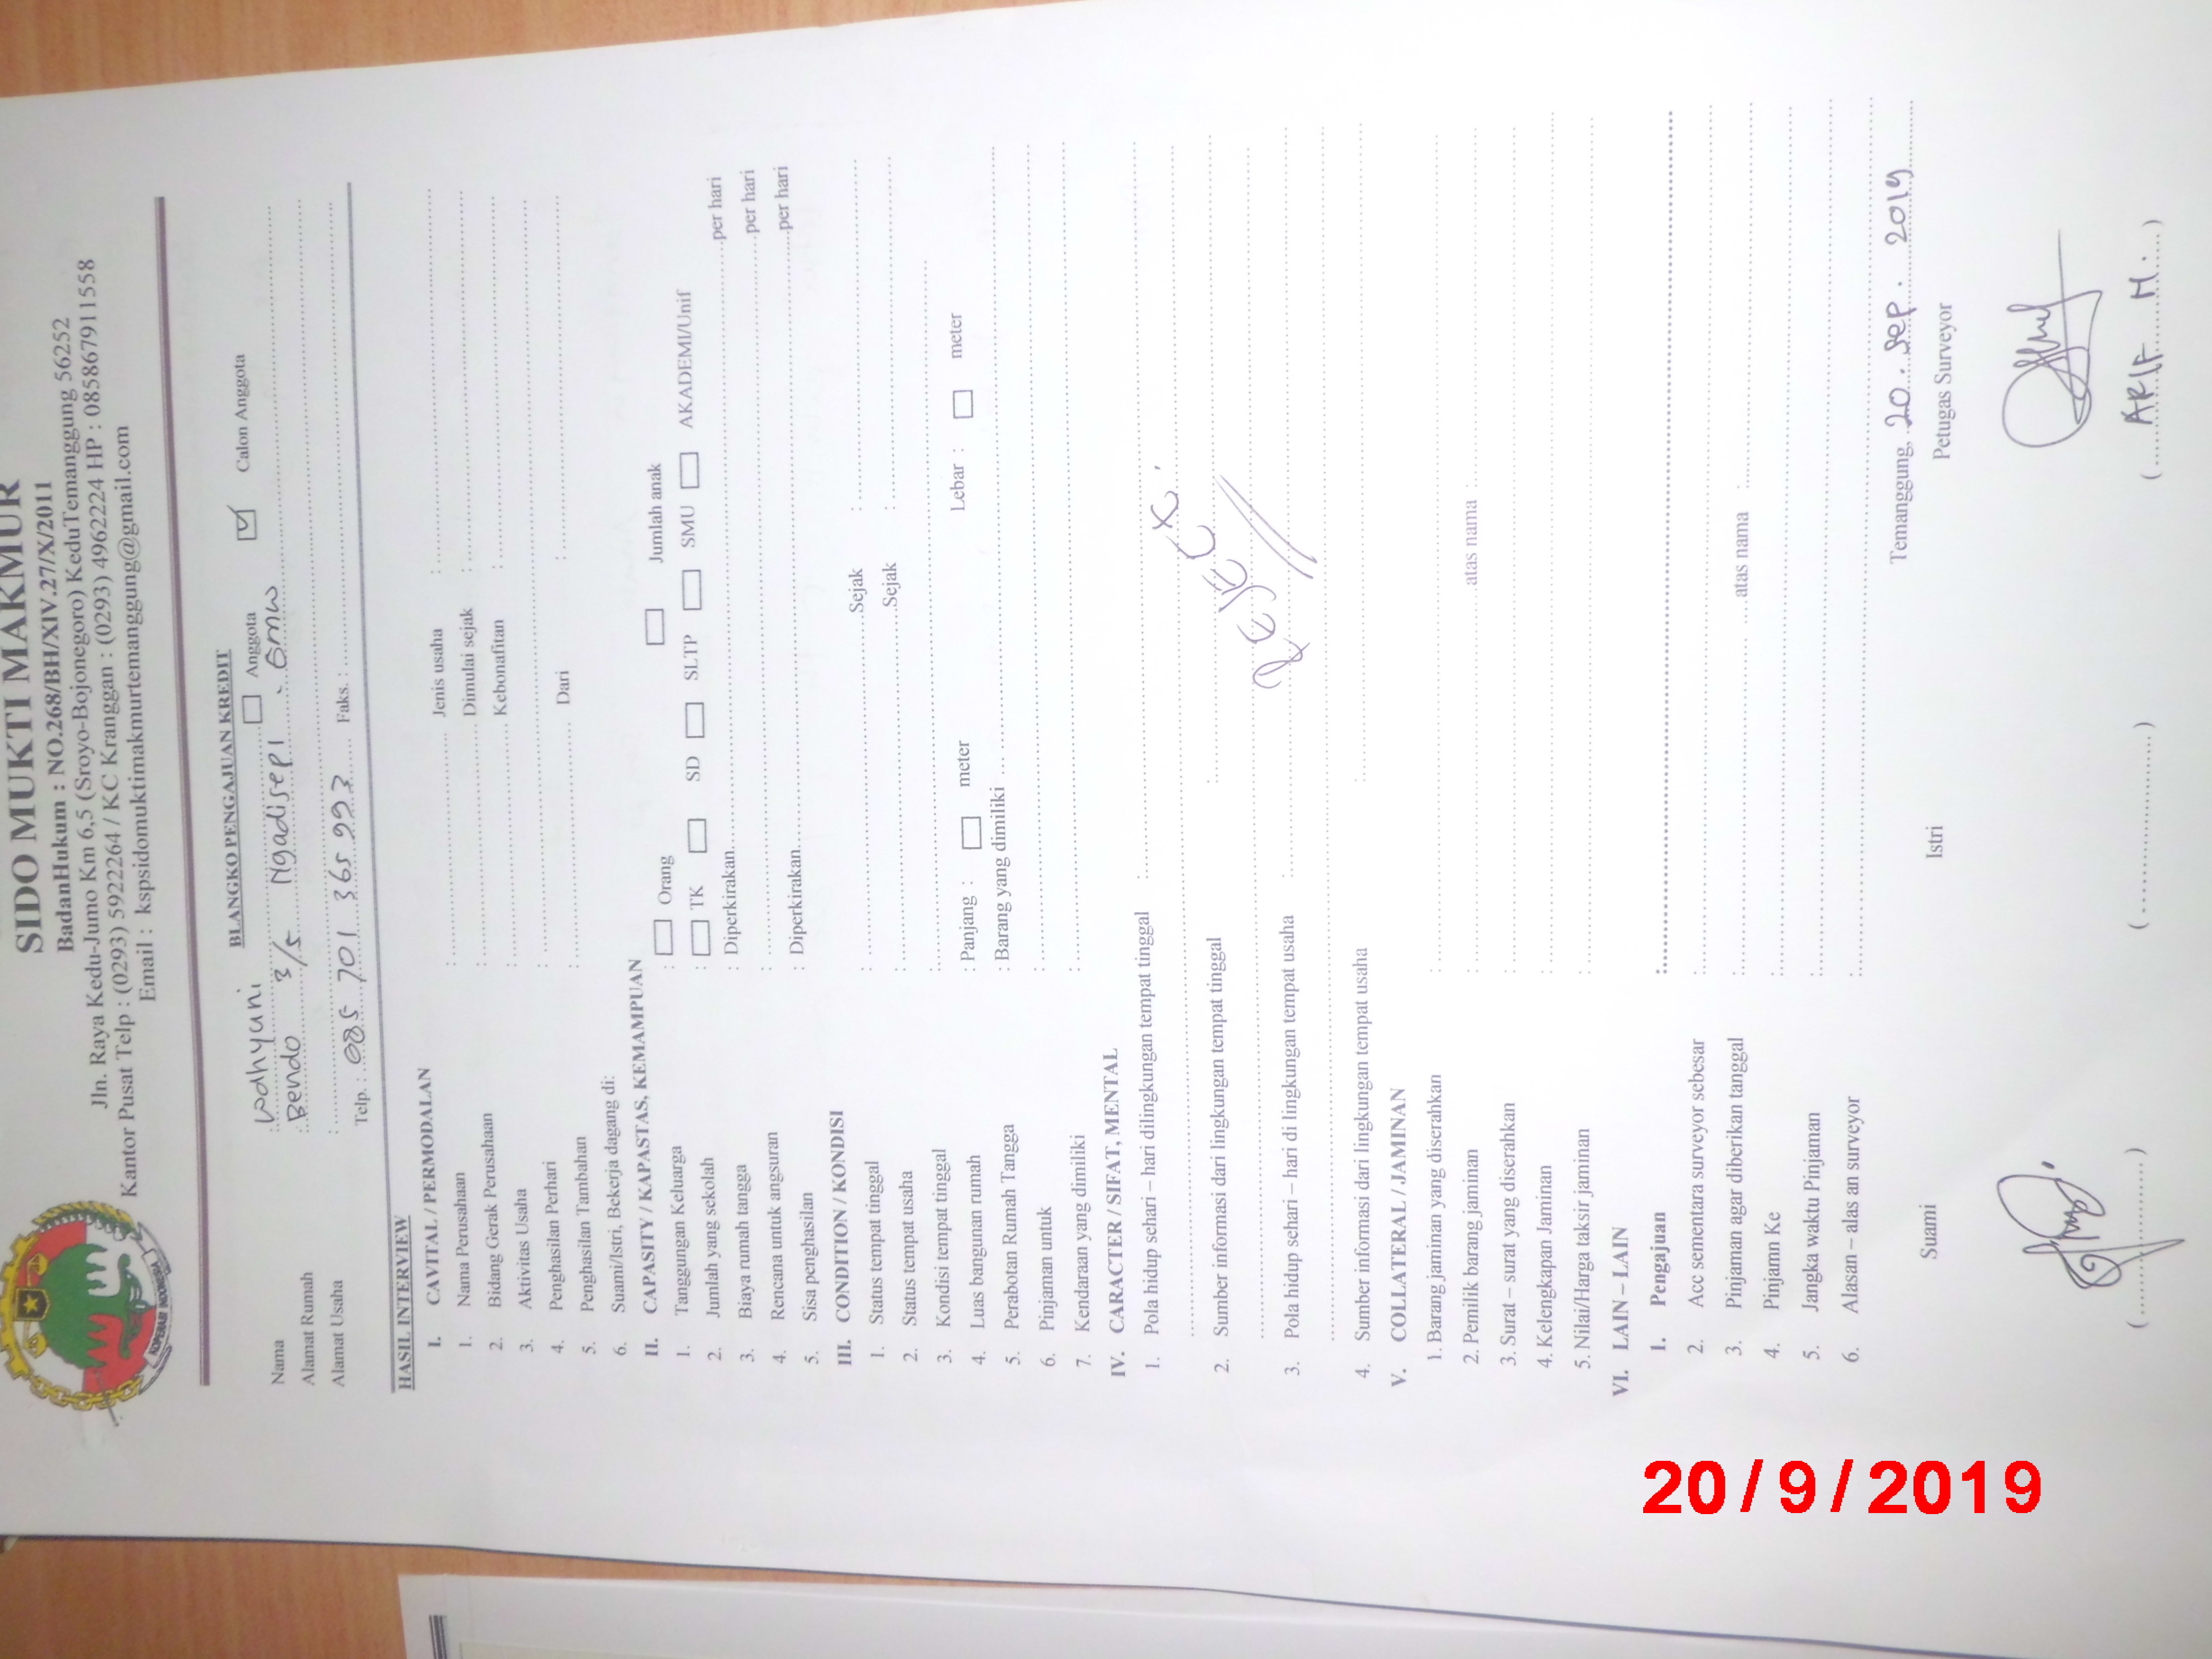 SIDO MUKTI MAKMUR
BadanHukum : NO.268/BH/XIV.27/X/2011
Jln. Raya Kedu-Jumo Km 6,5 (Sroyo-Bojonegoro) KeduTemanggung 56252
Kantor Pusat Telp : (0293) 5922264 / KC Kranggan : (0293) 4962224 HP : 085867911558
Email : kspsidomuktimakmurtemanggung@gmail.com
KOPERASI INDONESIA
BLANGKO PENGAJUAN KREDIT
Nama : Wahyuni Anggota Calon Anggota
Alamat Rumah : Bendo 3/5 Ngadisepi
Alamat Usaha :
Telp. : 085 701 365 993 Faks. :
HASIL INTERVIEW
I. CAVITAL / PERMODALAN
1. Nama Perusahaan : Jenis usaha :
2. Bidang Gerak Perusahaan : Dimulai sejak :
3. Aktivitas Usaha : Kebonafitan :
4. Penghasilan Perhari :
5. Penghasilan Tambahan : Dari :
6. Suami/Istri, Bekerja dagang di:
II. CAPASITY / KAPASTAS, KEMAMPUAN
1. Tanggungan Keluarga : Orang Jumlah anak
2. Jumlah yang sekolah : TK SD SLTP SMU AKADEMI/Unif
3. Biaya rumah tangga : Diperkirakan per hari
4. Rencana untuk angsuran : per hari
5. Sisa penghasilan : Diperkirakan per hari
III. CONDITION / KONDISI
1. Status tempat tinggal : Sejak :
2. Status tempat usaha : Sejak :
3. Kondisi tempat tinggal :
4. Luas bangunan rumah : Panjang : meter Lebar : meter
5. Perabotan Rumah Tangga : Barang yang dimiliki
6. Pinjaman untuk :
7. Kendaraan yang dimiliki :
IV. CARACTER / SIFAT, MENTAL
1. Pola hidup sehari – hari dilingkungan tempat tinggal :
2. Sumber informasi dari lingkungan tempat tinggal :
3. Pola hidup sehari – hari di lingkungan tempat usaha :
4. Sumber informasi dari lingkungan tempat usaha :
V. COLLATERAL / JAMINAN
1. Barang jaminan yang diserahkan :
2. Pemilik barang jaminan : atas nama :
3. Surat – surat yang diserahkan :
4. Kelengkapan Jaminan :
5. Nilai/Harga taksir jaminan :
VI. LAIN – LAIN
1. Pengajuan :
2. Acc sementara surveyor sebesar :
3. Pinjaman agar diberikan tanggal : atas nama :
4. Pinjamn Ke :
5. Jangka waktu Pinjaman :
6. Alasan – alas an surveyor :
Temanggung, 20 . Sep . 2019
Suami Istri Petugas Surveyor
( ) ( ) ( ARIF M. )
20/9/2019